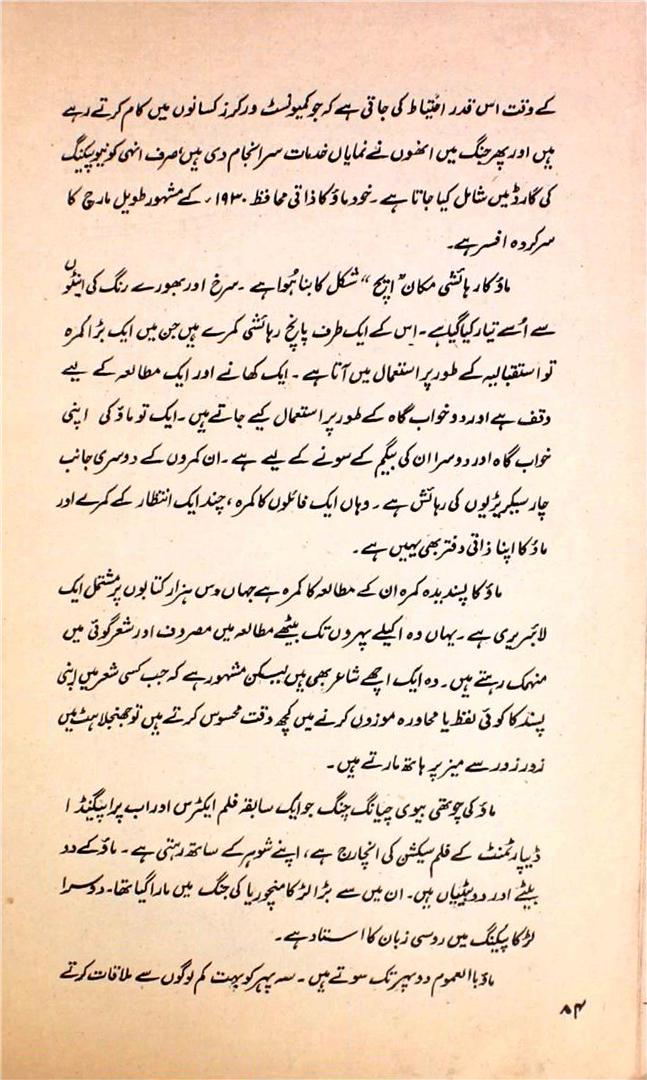 کے وقت اس قدر احتیاط کی جاتی ہے کہ جو کمیونسٹ ورکرز کسانوں میں کام کرتے رہے
ہیں اور پھر جنگ میں انھوں نے نمایاں خدمات سرانجام دی ہیں؛ صرف انہی کو نیو پیکنگ
کی گارڈ میں شامل کیا جاتا ہے۔ خود ماؤ کا ذاتی محافظ ۱۹۳۰ء کے مشہور طویل مارچ کا
سرکردہ افسر ہے۔
ماؤ کا رہائشی مکان "ایچ" شکل کا بنا ہُوا ہے۔ سرخ اور بھورے رنگ کی اینٹوں
سے اُسے تیار کیا گیا ہے۔ اِس کے ایک طرف پانچ رہائشی کمرے ہیں جن میں ایک بڑا کمرہ
تو استقبالیہ کے طور پر استعمال میں آتا ہے۔ ایک کھانے اور ایک مطالعہ کے لیے
وقف ہے اور دو خواب گاہ کے طور پر استعمال کیے جاتے ہیں۔ ایک تو ماؤ کی اپنی
خواب گاہ اور دوسرا ان کی بیگم کے سونے کے لیے ہے۔ ان کمروں کے دوسری جانب
چار سیکریٹریوں کی رہائش ہے۔ وہاں ایک فائلوں کا کمرہ، چند ایک انتظار کے کمرے اور
ماؤ کا اپنا ذاتی دفتر بھی یہیں ہے۔
ماؤ کا پسندیدہ کمرہ ان کے مطالعہ کا کمرہ ہے جہاں دس ہزار کتابوں پر مشتمل ایک
لائبریری ہے۔ یہاں وہ اکیلے پہروں تک بیٹھے مطالعہ میں مصروف اور شعر گوئی میں
منہمک رہتے ہیں۔ وہ ایک اچھے شاعر بھی ہیں لیکن مشہور ہے کہ جب کسی شعر میں اپنی
پسند کا کوئی لفظ یا محاورہ موزوں کرنے میں کچھ دقت محسوس کرتے ہیں تو جھنجلاہٹ میں
زور زور سے میز پر ہاتھ مارتے ہیں۔
ماؤ کی چوتھی بیوی چیانگ چنگ جو ایک سابقہ فلم ایکٹرس اور اب پراپیگنڈا
ڈیپارٹمنٹ کے فلم سیکشن کی انچارج ہے، اپنے شوہر کے ساتھ رہتی ہے۔ ماؤ کے دو
بیٹے اور دو بیٹیاں ہیں۔ ان میں سے بڑا لڑکا منچوریا کی جنگ میں مارا گیا تھا۔ دوسرا
لڑکا پیکنگ میں روسی زبان کا استاد ہے۔
ماؤ باالعموم دوپہر تک سوتے ہیں۔ سہ پہر کو بہت کم لوگوں سے ملاقات کرتے
۸۴